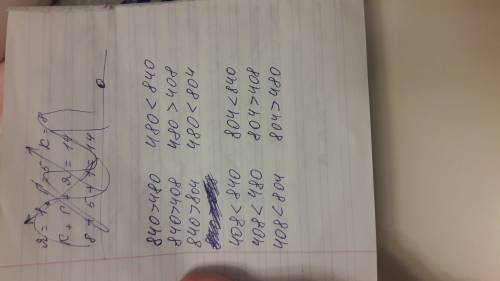 К + П + Я = 14
8 + 5 + 1 = 14
840>480 480<840
840>408 480>408
840>804 480<804
408<840 804<840
408<480 804>408
408<804 804>480